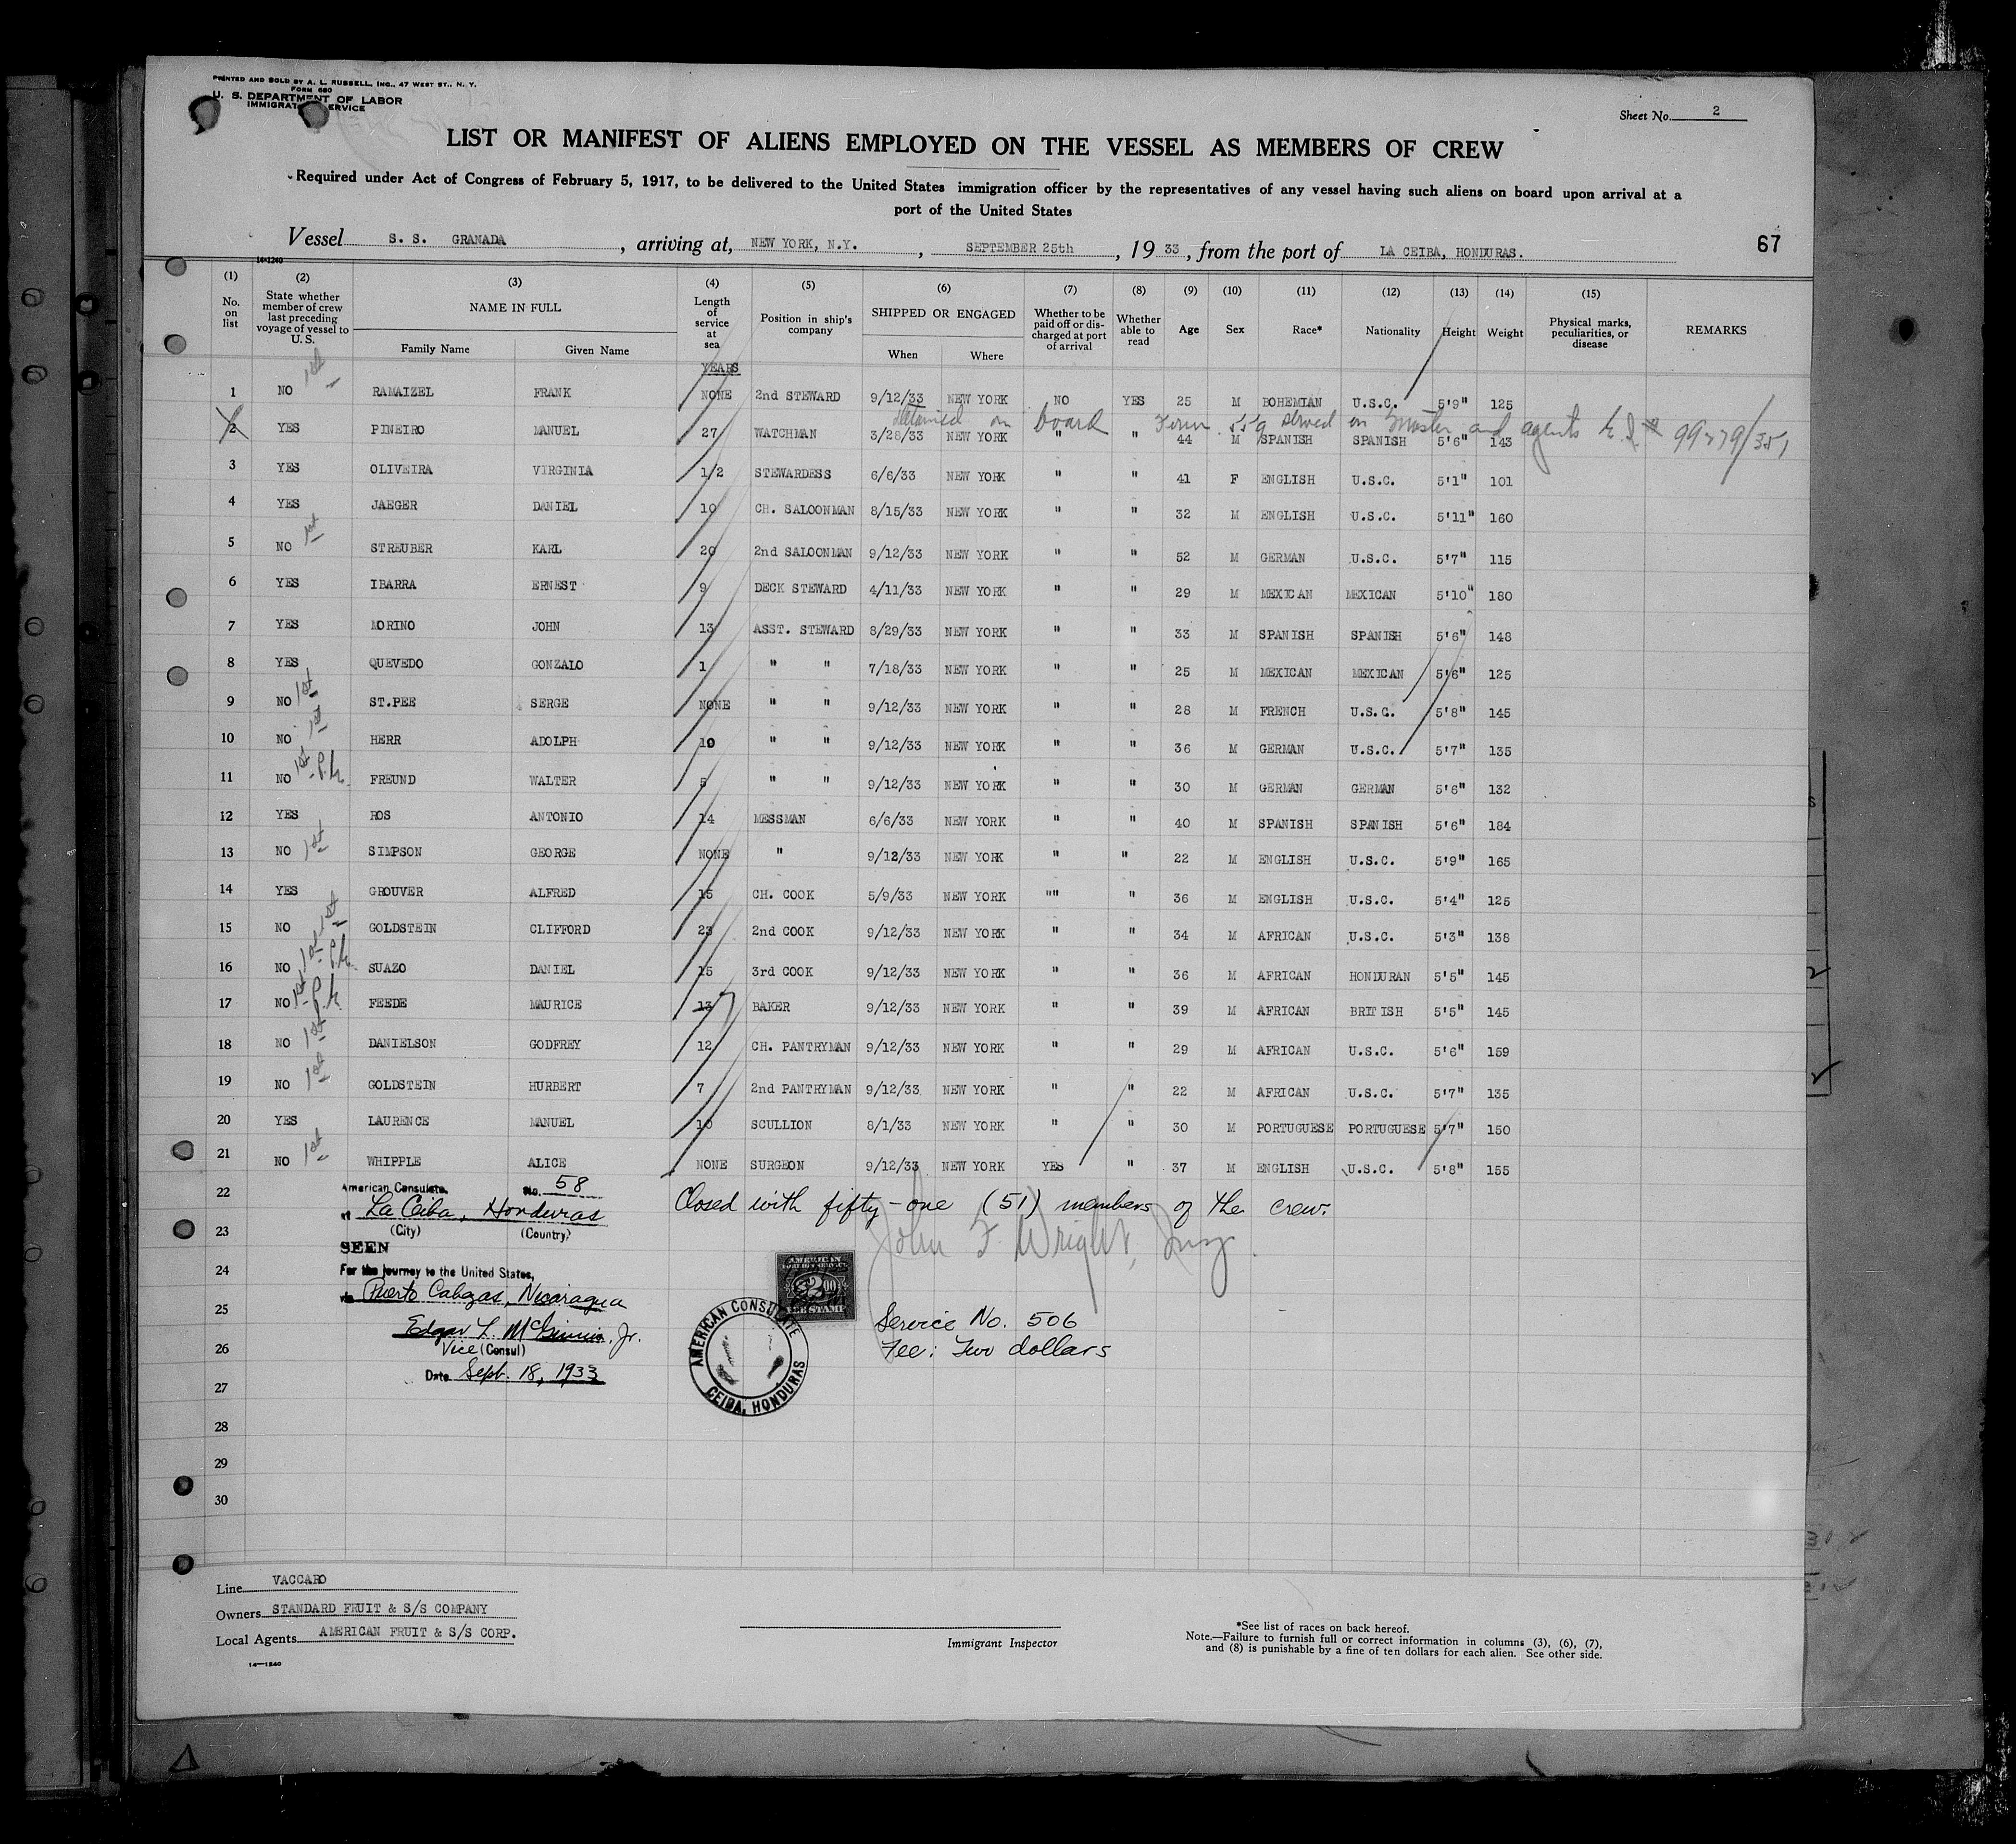 PRINTED AND SOLD BY A. L. RUSSELL, INC., 47 WEST ST., N. Y.
FORM 680
U. S. DEPARTMENT OF LABOR
IMMIGRAT SERVICE
Sheet No. 2
LIST OR MANIFEST OF ALIENS EMPLOYED ON THE VESSEL AS MEMBERS OF CREW
Required under Act of Congress of February 5, 1917, to be delivered to the United States immigration officer by the representatives of any vessel having such aliens on board upon arrival at a
port of the United States
Vessel S. S. GRANADA, arriving at, NEW YORK, N.Y., SEPTEMBER 25th, 19 33, from the port of LA CEIBA, HONDURAS. 67
14-1240
(1) (2) (3) (4) (5) (6) (7) (8) (9) (10) (11) (12) (13) (14) (15)
No. on list
State whether member of crew last preceding voyage of vessel to U. S.
NAME IN FULL
Family Name Given Name
Length of service at sea
YEARS
Position in ship's company
SHIPPED OR ENGAGED
When Where
Whether to be paid off or discharged at port of arrival
Whether able to read
Age Sex Race* Nationality Height Weight
Physical marks, peculiarities, or disease
REMARKS
1 NO 1st RAMAIZEL FRANK NONE 2nd STEWARD 9/12/33 NEW YORK NO YES 25 M BOHEMIAN U.S.C. 5'9" 125
detained on board Form 559 served on Master and agents
2 YES PINEIRO MANUEL 27 WATCHMAN 3/28/33 NEW YORK " " 44 M SPANISH SPANISH 5'6" 143
3 YES OLIVEIRA VIRGINIA 1/2 STEWARDESS 6/6/33 NEW YORK " " 41 F ENGLISH U.S.C. 5'1" 101
4 YES JAEGER DANIEL 10 CH. SALOONMAN 8/15/33 NEW YORK " " 32 M ENGLISH U.S.C. 5'11" 160
5 NO 1st STREUBER KARL 20 2nd SALOONMAN 9/12/33 NEW YORK " " 52 M GERMAN U.S.C. 5'7" 115
6 YES IBARRA ERNEST 9 DECK STEWARD 4/11/33 NEW YORK " " 29 M MEXICAN MEXICAN 5'10" 180
7 YES MORINO JOHN 13 ASST. STEWARD 8/29/33 NEW YORK " " 33 M SPANISH SPANISH 5'6" 148
8 YES QUEVEDO GONZALO 1 " " 7/18/33 NEW YORK " " 25 M MEXICAN MEXICAN 5'6" 125
9 NO 1st ST.PEE SERGE NONE " " 9/12/33 NEW YORK " " 28 M FRENCH U.S.C. 5'8" 145
10 NO 1st HERR ADOLPH 10 " " 9/12/33 NEW YORK " " 36 M GERMAN U.S.C. 5'7" 135
11 NO 1st FREUND WALTER 5 " " 9/12/33 NEW YORK " " 30 M GERMAN GERMAN 5'6" 132
12 YES ROS ANTONIO 14 MESSMAN 6/6/33 NEW YORK " " 40 M SPANISH SPANISH 5'6" 184
13 NO 1st SIMPSON GEORGE NONE " 9/12/33 NEW YORK " " 22 M ENGLISH U.S.C. 5'9" 165
14 YES GROUVER ALFRED 15 CH. COOK 5/9/33 NEW YORK "" " 36 M ENGLISH U.S.C. 5'4" 125
15 NO 1st GOLDSTEIN CLIFFORD 23 2nd COOK 9/12/33 NEW YORK " " 34 M AFRICAN U.S.C. 5'3" 138
16 NO 1st SUAZO DANIEL 15 3rd COOK 9/12/33 NEW YORK " " 36 M AFRICAN HONDURAN 5'5" 145
17 NO 1st FEEDE MAURICE 13 7 BAKER 9/12/33 NEW YORK " " 39 M AFRICAN BRITISH 5'5" 145
18 NO 1st DANIELSON GODFREY 12 CH. PANTRYMAN 9/12/33 NEW YORK " " 29 M AFRICAN U.S.C. 5'6" 159
19 NO 1st GOLDSTEIN HURBERT 7 2nd PANTRYMAN 9/12/33 NEW YORK " " 22 M AFRICAN U.S.C. 5'7" 135
20 YES LAURENCE MANUEL 10 SCULLION 8/1/33 NEW YORK " " 30 M PORTUGUESE PORTUGUESE 5'7" 150
21 NO 1st WHIPPLE ALICE NONE SURGEON 9/12/33 NEW YORK YES " 37 M ENGLISH U.S.C. 5'8" 155
22
23
24
25
26
27
28
29
30
American Consulate, No. 58
at La Ceiba, Honduras
(City) (Country)
SEEN
For the journey to the United States,
via Puerto Cabezas, Nicaragua
Edgar L. McGinnis, Jr.
Vice (Consul)
Date Sept. 18, 1933
Closed with fifty-one (51) members of the crew.
John F. Wright
AMERICAN
FOREIGN SERVICE
$2.00
FEE STAMP
AMERICAN CONSULATE
CEIBA, HONDURAS
Service No. 506
Fee: Two dollars
Line VACCARO
Owners STANDARD FRUIT & S/S COMPANY
Local Agents AMERICAN FRUIT & S/S CORP.
14—1240
Immigrant Inspector
*See list of races on back hereof.
Note.—Failure to furnish full or correct information in columns (3), (6), (7),
and (8) is punishable by a fine of ten dollars for each alien. See other side.